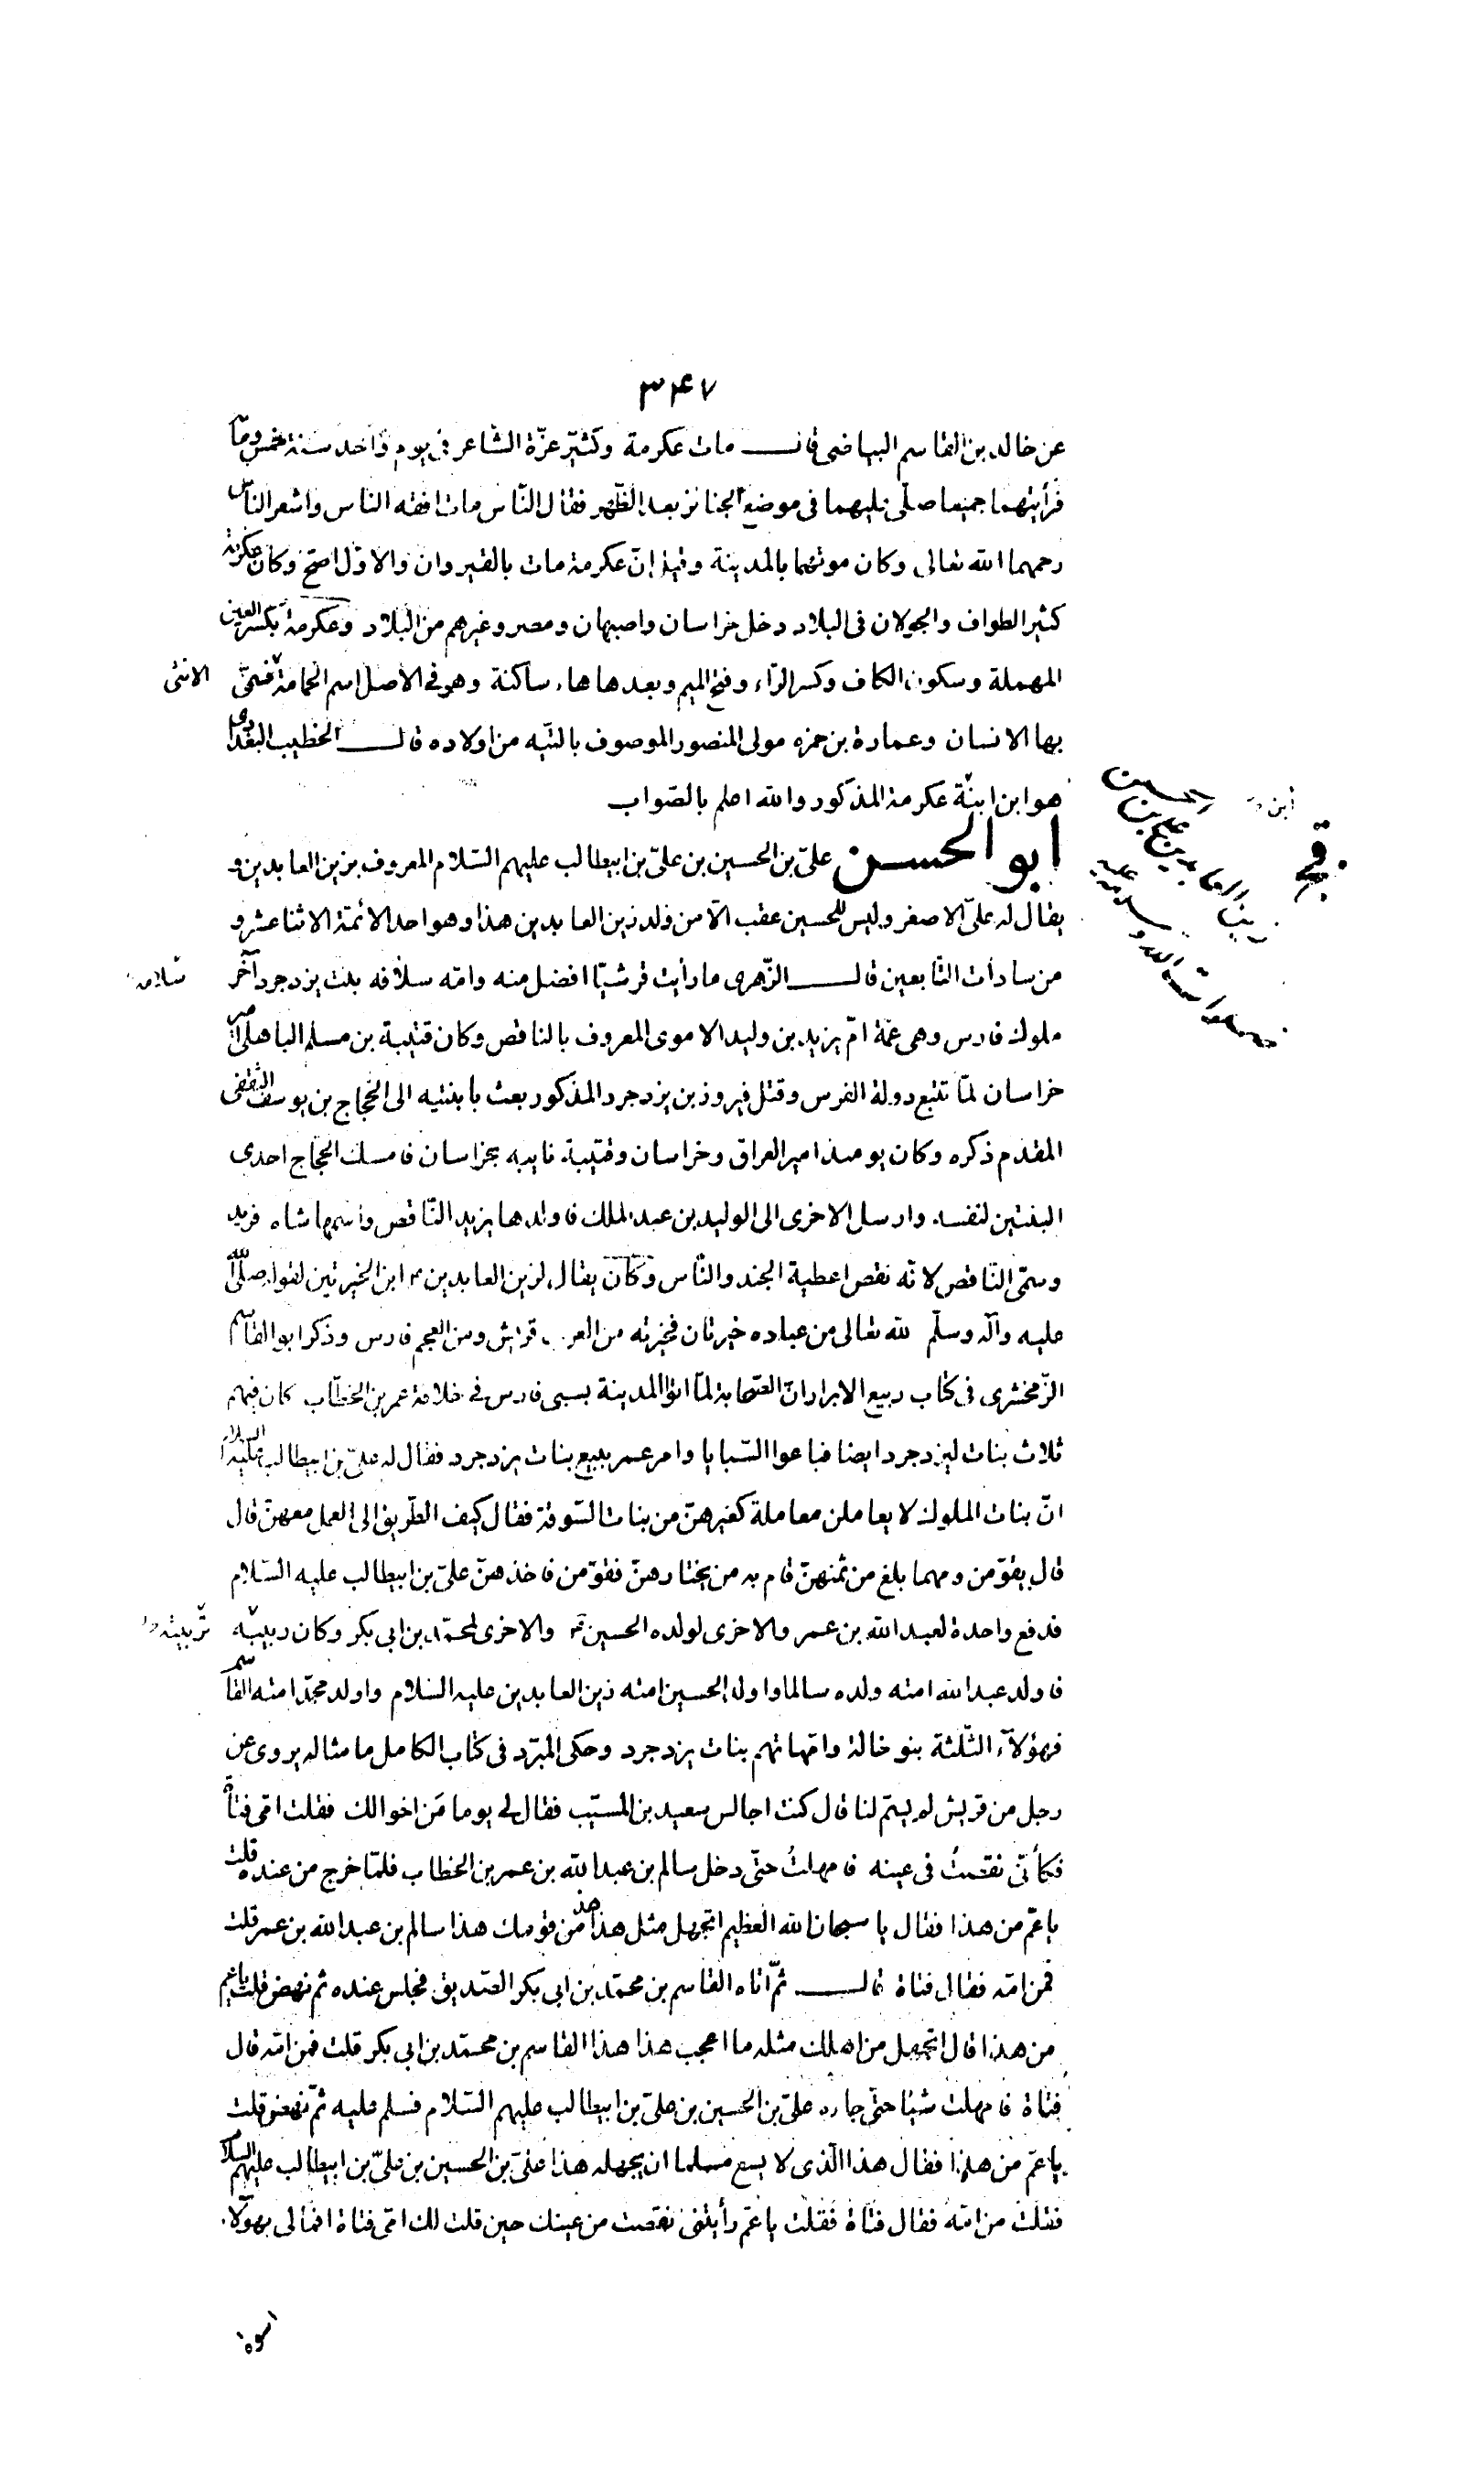 ۳۴۷
عن خالد بن القاسم البياضى قال مات عكرمة وكثيّر عزّة الشّاعر فى يوم واحد سنة خمس ومأ
فرأيتهما جميعا صلّى عليهما فى موضع الجنائز بعد الظّهر فقال النّاس مات افقه الناس واشعر الناس
رحمهما الله تعالى وكان موتهما بالمدينة وقيل إنّ عكرمة مات بالقيروان والاوّل اصحّ وكان عكرمة
كثير الطواف والجولان فى البلاد دخل خراسان واصبهان ومصر وغيرهم من البلاد وعكرمة بكسر العين
المهملة وسكون الكاف وكسر الرّاء وفتح الميم وبعدها هاء ساكنة وهو فى الاصل اسم الحمامة فسمّى
الانثى
بها الانسان وعمارة بن حمزه مولى المنصور الموصوف بالتيه من اولاده قال الخطيب البغدادى
هو ابن ابنة عكرمة المذكور والله اعلم بالصّواب
ابن
زين العابدين على بن الحسين
صلوات الله وسلامه عليه
ابو الحسن علىّ بن الحسين بن علىّ بن ابيطالب عليهم السّلام المعروف بزين العابدين و
يقال له علىّ الاصغر وليس للحسين عقب الّا من ولد زين العابدين هذا وهو احد الائمّة الاثنا عشر و
من سادات التّابعين قال الزّهرى ما رأيت قرشيّا افضل منه وامّه سلافه بنت يزدجرد آخر
سلامه
ملوك فارس وهى عمّة امّ يزيد بن وليد الاموى المعروف بالناقص وكان قتيبة بن مسلم الباهلى امير
خراسان لمّا تتبع دولة الفرس وقتل فيروز بن يزدجرد المذكور بعث بابنتيه الى الحجّاج بن يوسف الثقفى
المقدم ذكره وكان يومئذ امير العراق وخراسان وقتيبة نايبه بخراسان فامسك الحجّاج احدى
البنتين لنفسه وارسل الاخرى الى الوليد بن عبد الملك فاولدها يزيد النّاقص واسمها شاه فريد
وسمّى النّاقص لانّه نقص اعطية الجند والنّاس وكان يقال لزين العابدين ابن الخيرتين لقوله صلّى الله
عليه وآله وسلّم لله تعالى من عباده خيرتان فخيرته من العرب قريش ومن العجم فارس وذكر ابو القاسم
الزّمخشرى فى كتاب ربيع الابرار انّ الصّحابة لمّا اتوا المدينة بسبى فارس فى خلافة عمر بن الخطّاب كان فيهم
ثلاث بنات ليزدجرد ايضا فباعوا السّبايا وامر عمر ببيع بنات يزدجرد فقال له علىّ بن ابيطالب عليه السلام
انّ بنات الملوك لا يعاملن معاملة كغيرهنّ من بنات السّوقة فقال كيف الطّريق الى العمل معهنّ قال
قال يقوّمن ومهما بلغ من ثمنهنّ قام به من يختارهنّ فقوّمن فاخذهنّ علىّ بن ابيطالب عليه السّلام
فدفع واحدة لعبد الله بن عمر والاخرى لولده الحسين والاخرى لمحمّد بن ابى بكر وكان ربيبه
تربيته
فاولد عبد الله امته ولده سالما واولد الحسين امته زين العابدين عليه السّلام واولد محمّد امته القاسم
فهؤلآء الثّلثة بنو خالة وامّهاتهم بنات يزدجرد وحكى المبرّد فى كتاب الكامل ما مثاله يروى عن
رجل من قريش لم يسمّ لنا قال كنت اجالس سعيد بن المسيّب فقال لى يوما مَن اخوالك فقلت امّى فتاة
فكأنّى نقصتُ فى عينه فامهلتُ حتّى دخل سالم بن عبد الله بن عمر بن الخطاب فلمّا خرج من عنده قلت
يا عمّ من هذا فقال يا سبحان الله العظيم اتجهل مثل هذا هذا من قومك هذا سالم بن عبد الله بن عمر قلت
فمن امّه فقال فتاة قال ثمّ اتاه القاسم بن محمّد بن ابى بكر الصّديق فجلس عنده ثم نهض قلت يا عم
من هذا قال اتجهل من اهلك مثله ما اعجب هذا هذا القاسم بن محمّد بن ابى بكر قلت فمن امّه قال
فتاة فامهلت شيئا حتّى جاءه علىّ بن الحسين بن علىّ بن ابيطالب عليهم السّلام فسلم عليه ثمّ نهض قلت
يا عمّ من هذا فقال هذا الّذى لا يسع مسلما ان يجهله هذا علىّ بن الحسين بن علىّ بن ابيطالب عليهم السّلام
فقلت من امّه فقال فتاة فقلت يا عمّ رأيتنى نقصت من عينك حين قلت لك امّى فتاة افما لى بهؤلآء
اسوة